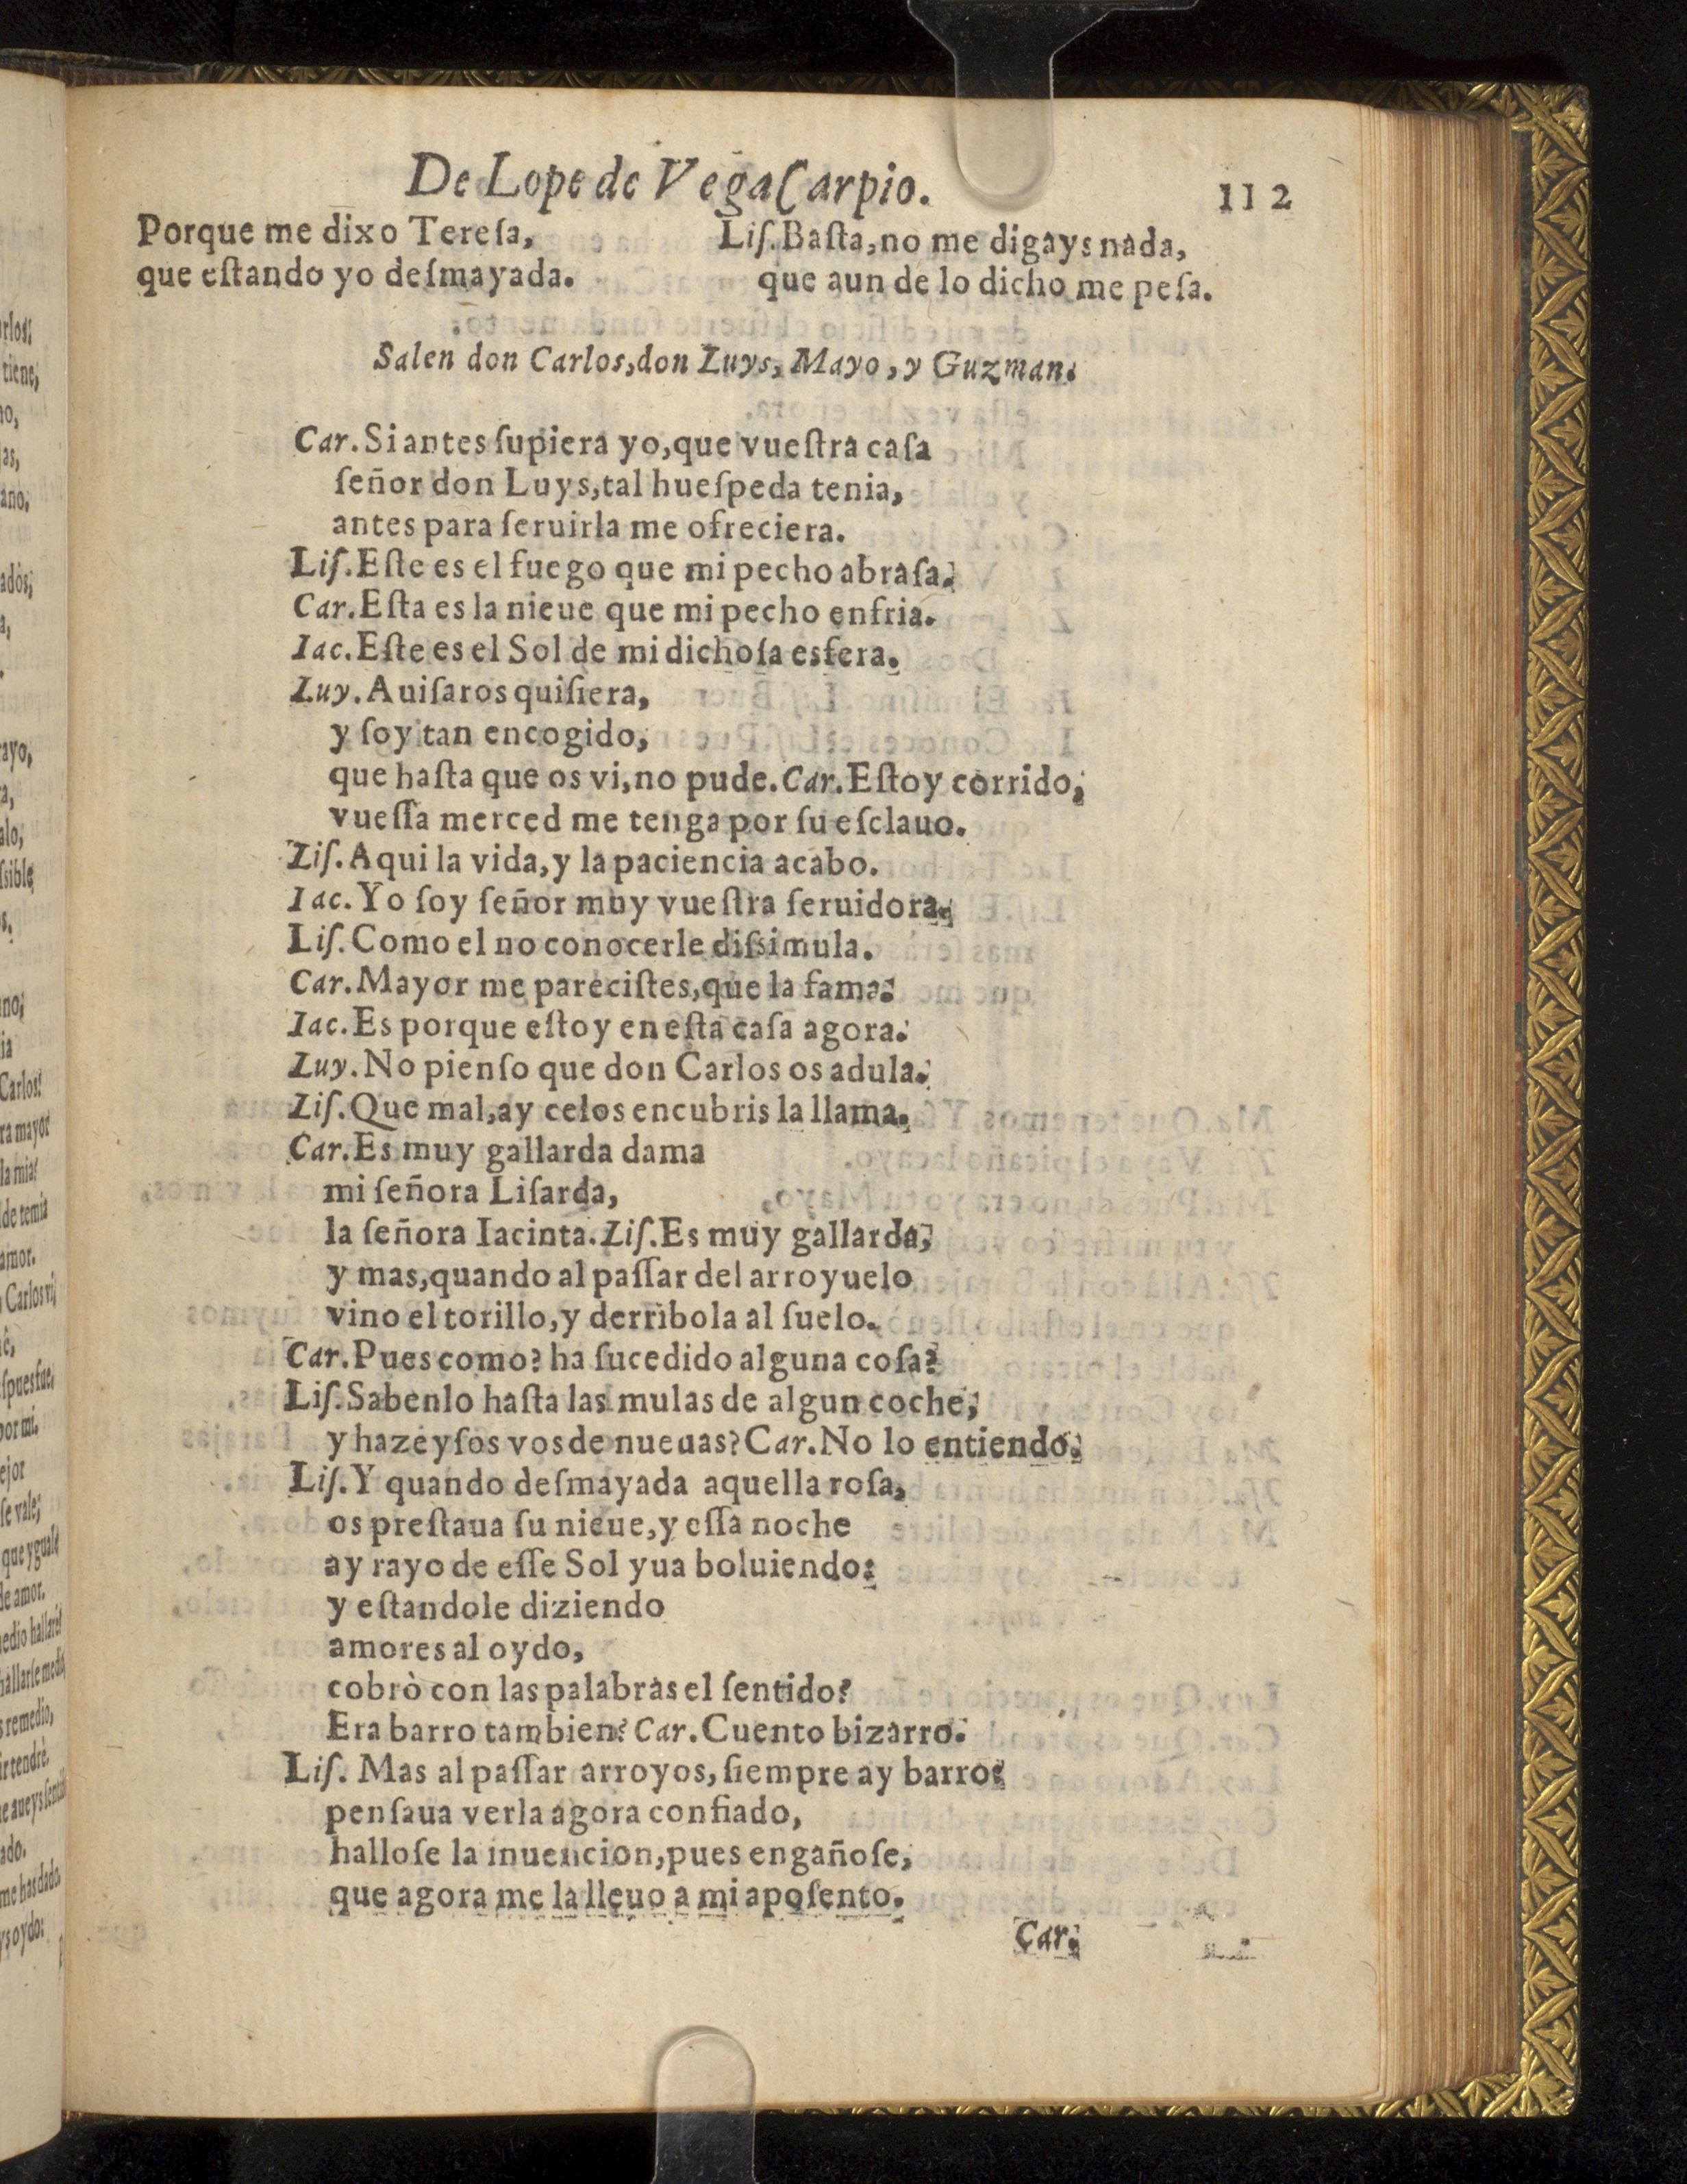 De Lope de Vega Carpio. 112
Porque me dixo Tereſa,
que eſtando yo deſmayada.
Liſ. Baſta, no me digays nada,
que aun de lo dicho me peſa.
Salen don Carlos, don Luys, Mayo, y Guzman.
Car. Si antes ſupiera yo, que vueſtra caſa
ſeñor don Luys, tal hueſpeda tenia,
antes para ſeruirla me ofreciera.
Liſ. Eſte es el fuego que mi pecho abraſa.
Car. Eſta es la nieue que mi pecho enfria.
Iac. Eſte es el Sol de mi dichoſa esfera.
Luy. Auiſaros quiſiera,
y ſoy tan encogido,
que haſta que os vi, no pude. Car. Eſtoy corrido,
vueſſa merced me tenga por ſu eſclauo.
Liſ. Aqui la vida, y la paciencia acabo.
Iac. Yo ſoy ſeñor muy vueſtra ſeruidora.
Liſ. Como el no conocerle diſsimula.
Car. Mayor me pareciſtes, que la fama:
Iac. Es porque eſtoy en eſta caſa agora.
Luy. No pienſo que don Carlos os adula.
Liſ. Que mal, ay celos encubris la llama.
Car. Es muy gallarda dama
mi ſeñora Liſarda,
la ſeñora Iacinta. Liſ. Es muy gallarda,
y mas, quando al paſſar del arroyuelo
vino el torillo, y derribola al ſuelo.
Car. Pues como? ha ſucedido alguna coſa?
Liſ. Sabenlo haſta las mulas de algun coche,
y hazeyſos vos de nueuas? Car. No lo entiendo.
Liſ. Y quando deſmayada aquella roſa,
os preſtaua ſu nieue, y eſſa noche
ay rayo de eſſe Sol yua boluiendo:
y eſtandole diziendo
amores al oydo,
cobrò con las palabras el ſentido?
Era barro tambien? Car. Cuento bizarro.
Liſ. Mas al paſſar arroyos, ſiempre ay barro:
penſaua verla agora confiado,
halloſe la inuencion, pues engañoſe,
que agora me la lleuo a mi apoſento.
Car.